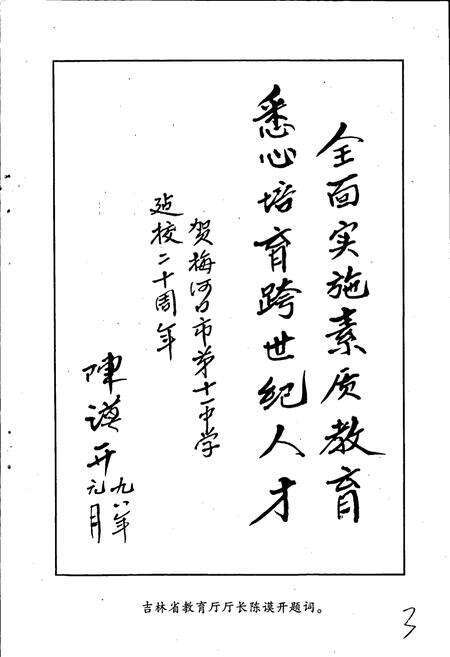 全面实施素质教育
悉心培育跨世纪人才
贺梅河口市第十一中学
建校二十周年
陈谟开
九八年
元月
吉林省教育厅厅长陈谟开题词。
3